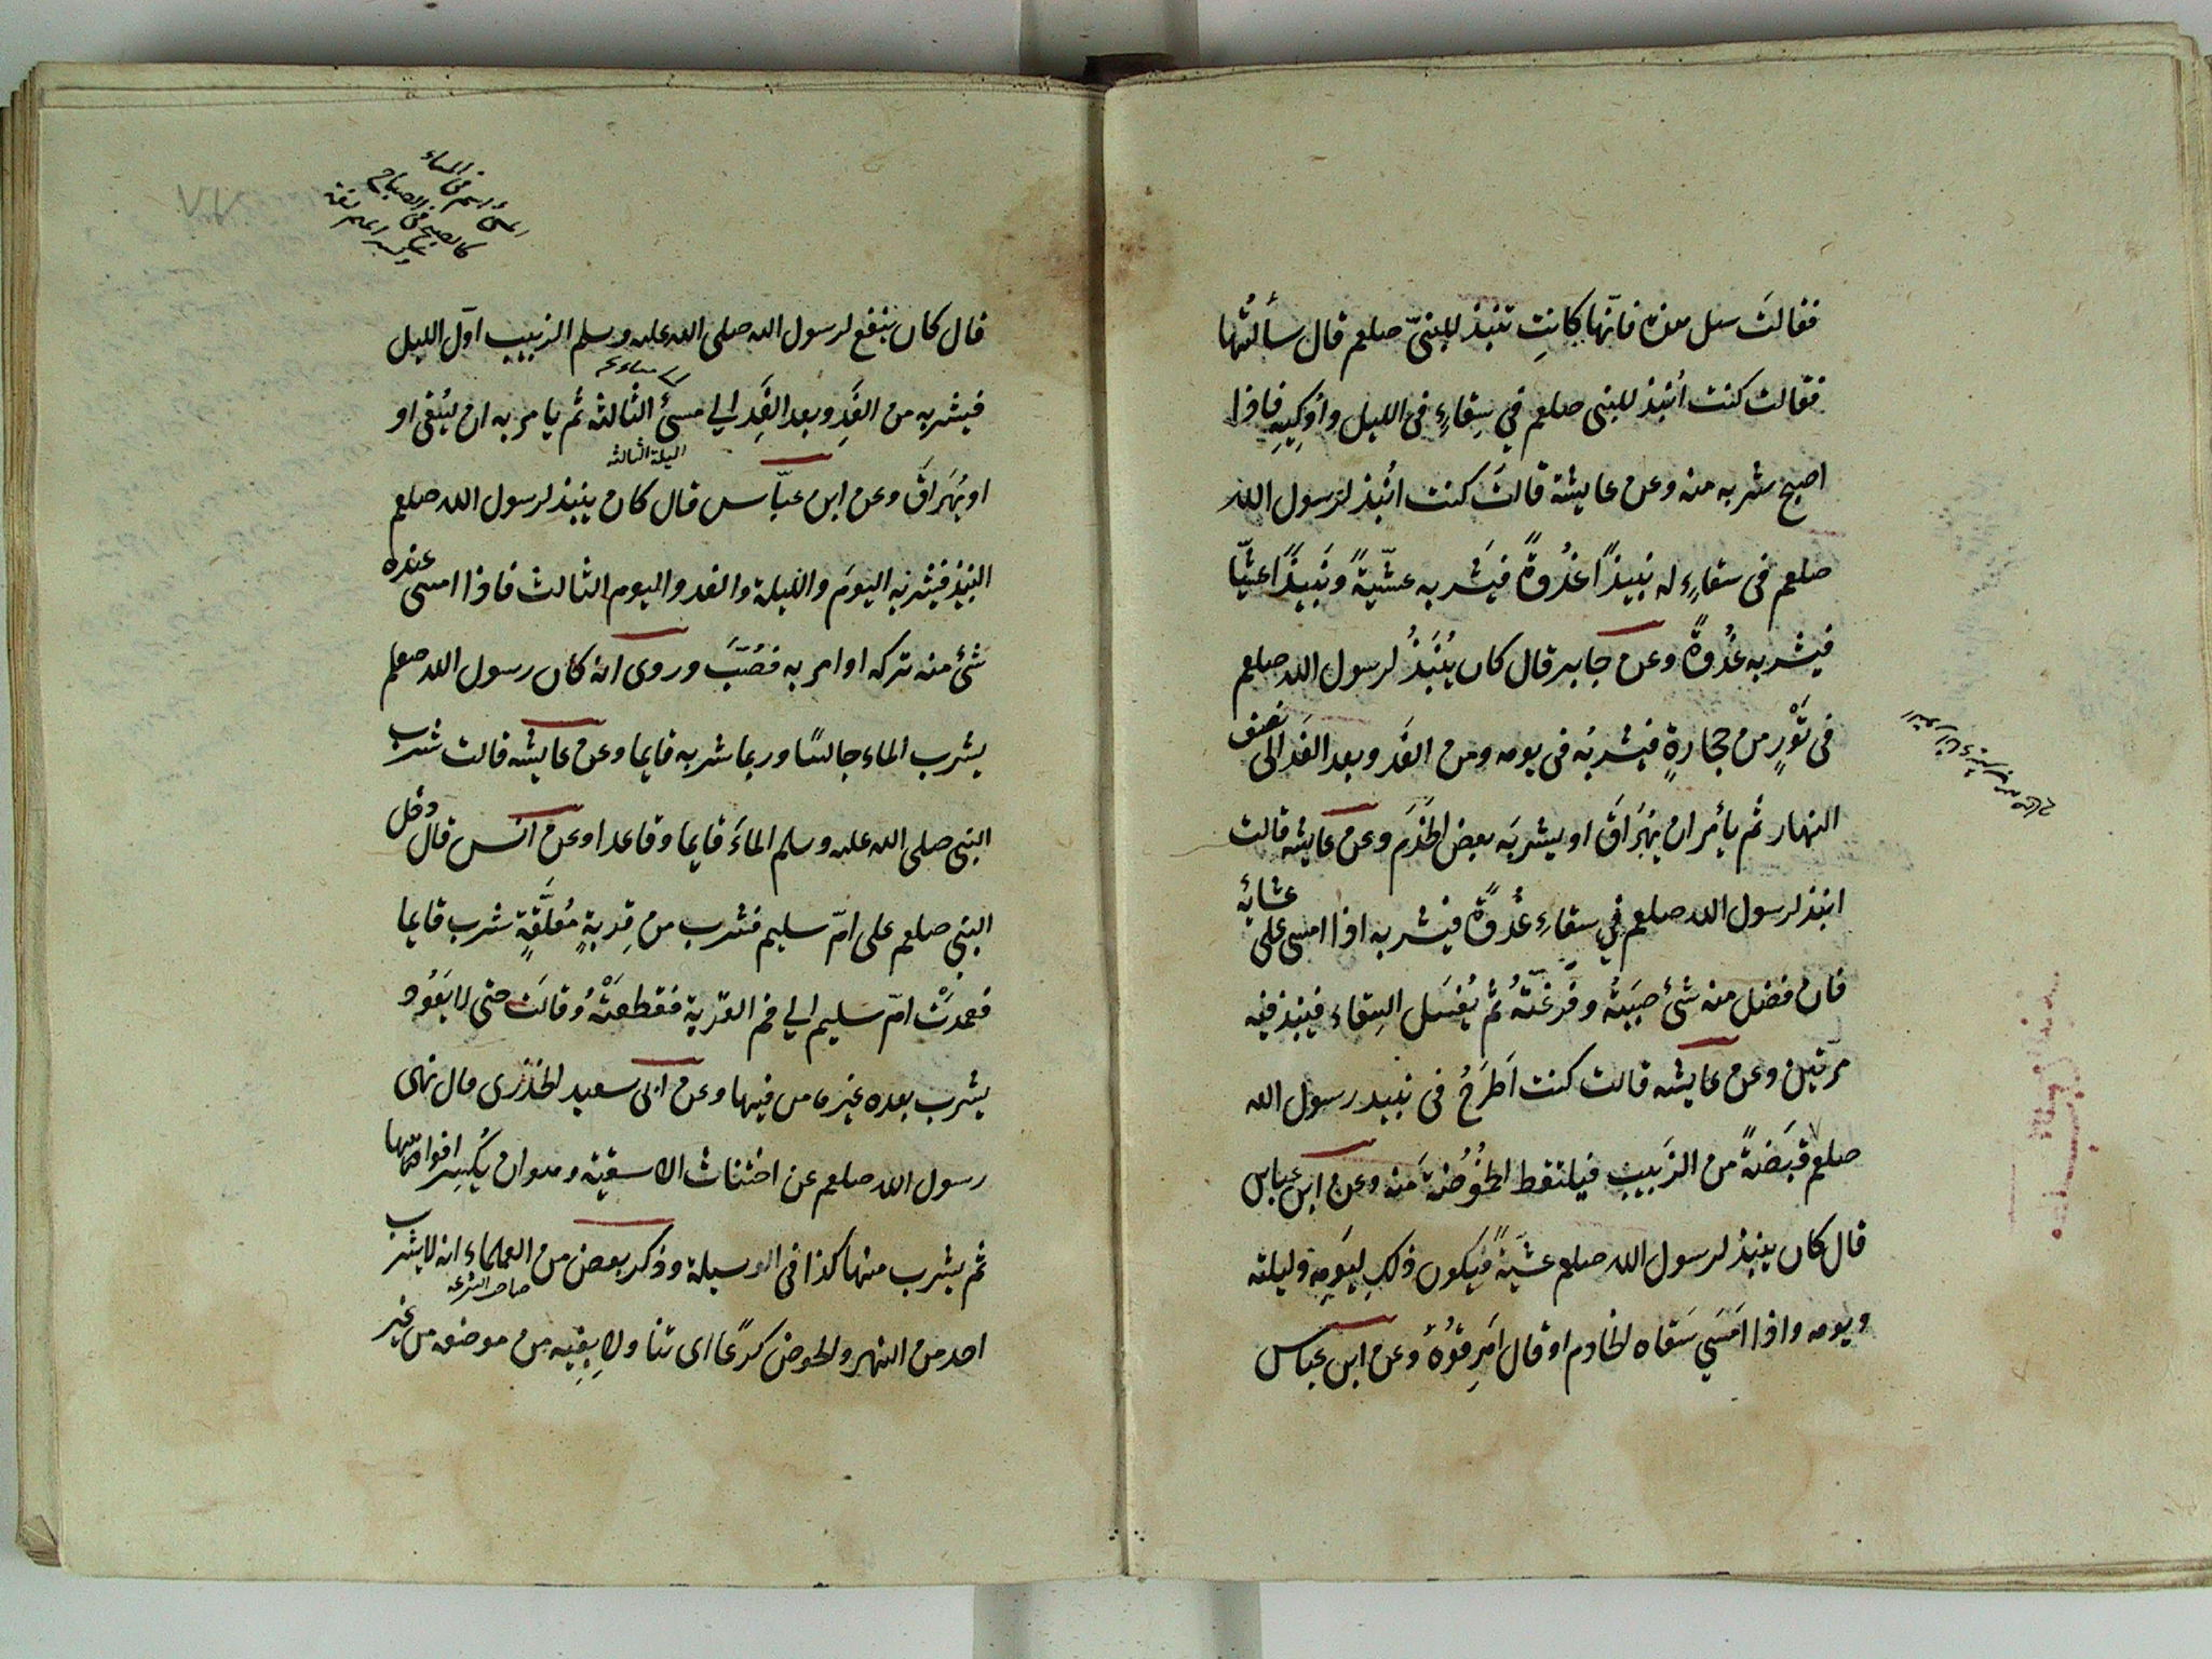 فقالت سل هذه فانّها كانتِ تنبذ للنبىّ صلعم قال سألتُها
فقالت كنت انبُذ للنبى صلعم في سِقاءٍ فى الليل واُوكِيهِ فاذا
اصبح شربه منه وعن عايشة قالتَ كنت انبُذ لرسول الله
صلعم فى سقاءٍ له نبيذًا غدُوةً فيَشربه عشّيةً ونَبيذًا عشيّا
فيشربه غدُوةً وعن جابر قال كان يُنبَذُ لرسول الله صلعم
فى تَوْرٍ من حجارةٍ فيشربُه فى يومه ومن الغَد وبعد الغَد الى نصف
النهار ثم يأمر ان يهَراقَ او يشربَه بعض الخَدَم وعن عايشه قالت
انبذ لرسول الله صلعم في سقاءِ غدُوةً فيشربه اذا امسى على عشائِه
فان فضل منه شئ صبَبتُه وفَرغّتهُ ثم يُغسَل السِقاء فينبذ فيه
مرّتين وعن عايشه قالت كنت اَطرَحُ فى نبيد رسول الله
صلعم قَبَضةً من الزَبيب فيلتقط الحُمُوضَة مَنه وعن ابن عباس
قال كان ينبذ لرسول الله صلعم عشّيةً فيَكون ذلك ليَومِه وليلته
ويومه واذا امَسَي سَقاه الخادم او قال اَمرِ قوُهُ وعن ابن عباس
قال كان ينقع لرسول الله صلى الله عليه وسلم الزبيب اوّل الليل
فيشربه من الغَدِ وبعد الغَدِ الي مسئ الثالثه ثم يامر به ان يُسْقى او
الليلة الثالثه
او يُهَراقَ وعن ابن عبّاس قال كان ينبذ لرسول الله صلعم
النبيذ فيشربُه اليومَ والليلة والغد واليوم الثالث فاذا امسى عنده
شئ منه تركه او امر به فصُبَّ وروى انه كان رسول الله صلعم
يشرب الماء جالسًا وربما شربه قايما وعن عايشه قالت شرب
النبى صلى الله عليه وسلم الماءَ قايما وقاعدا وعن انس قال دخل
النبي صلعم على امّ سليم فشرب من قِربةٍ مُعلَّقةٍ شرب قايما
فعمدَتْ امّ سليم الي فم القرّبة فقطعَتْهُ وقالَت حتى لا يَعُود
يشرب بعده غيره من فيها وعن ابى سعيد الخذرى قال نهى
رسول الله صلعم عن اختناث الاسقية وهو ان يُكسر افواهها
ثم يشرب منها كذا فى الوسيلة وذكر بعض من العلماء انه لا يشرب
صاحب الشرعه
احد من النهر والحوض كرَعًا اى تنا ولا بِفيه من موضعه من غير